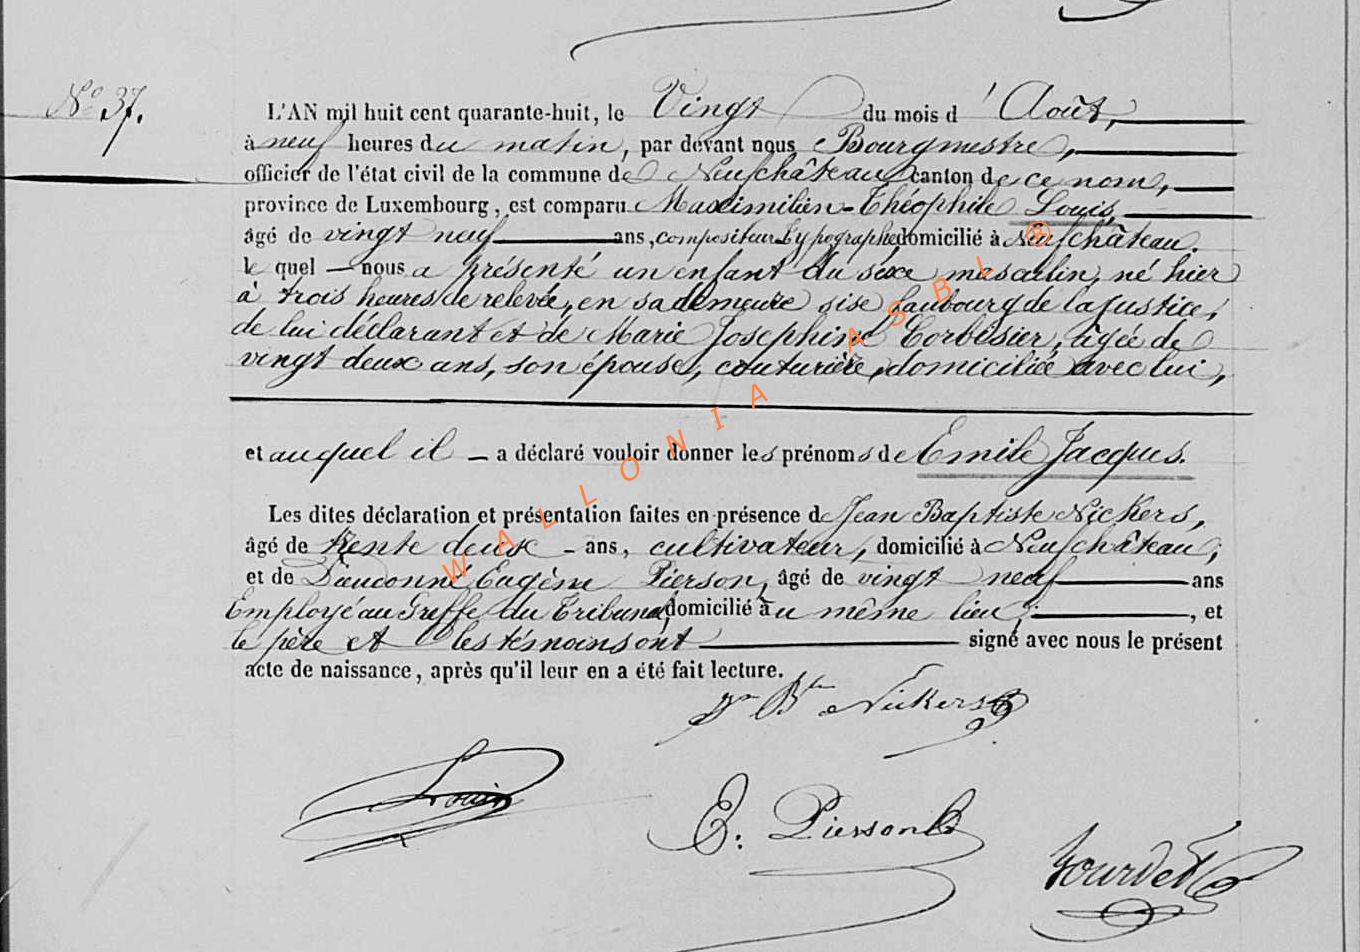 N° 37.
L'AN mil huit cent quarante-huit, le Vingt du mois d'Août,
à neuf heures du matin, par devant nous Bourgmestre,
officier de l'état civil de la commune de Neufchâteau canton de ce nom,
province de Luxembourg, est comparu Maximilien-Théophile Louis,
âgé de vingt neuf ans, compositeur typographe, domicilié à Neufchâteau.
le quel – nous a présenté un enfant du sexe masculin, né hier
à trois heures de relevée, en sa demeure sise faubourg de la justice,
de lui déclarant et de Marie Josephine Corbisier, âgée de
vingt deux ans, son épouse, couturière, domiciliée avec lui,
et auquel il – a déclaré vouloir donner les prénoms de Emile Jacques.
Les dites déclaration et présentation faites en présence de Jean Baptiste Nickers,
âgé de trente deux – ans, cultivateur, domicilié à Neufchâteau,
et de Dieudonné Eugène Pierson, âgé de vingt neuf ans
Employé au Greffe du Tribunal, domicilié au même lieu, , et
le père et les témoins ont signé avec nous le présent
acte de naissance, après qu'il leur en a été fait lecture.
Jn Bte Nickers
Louis
E. Pierson
Gourdet
WALLONIA ASBL ®